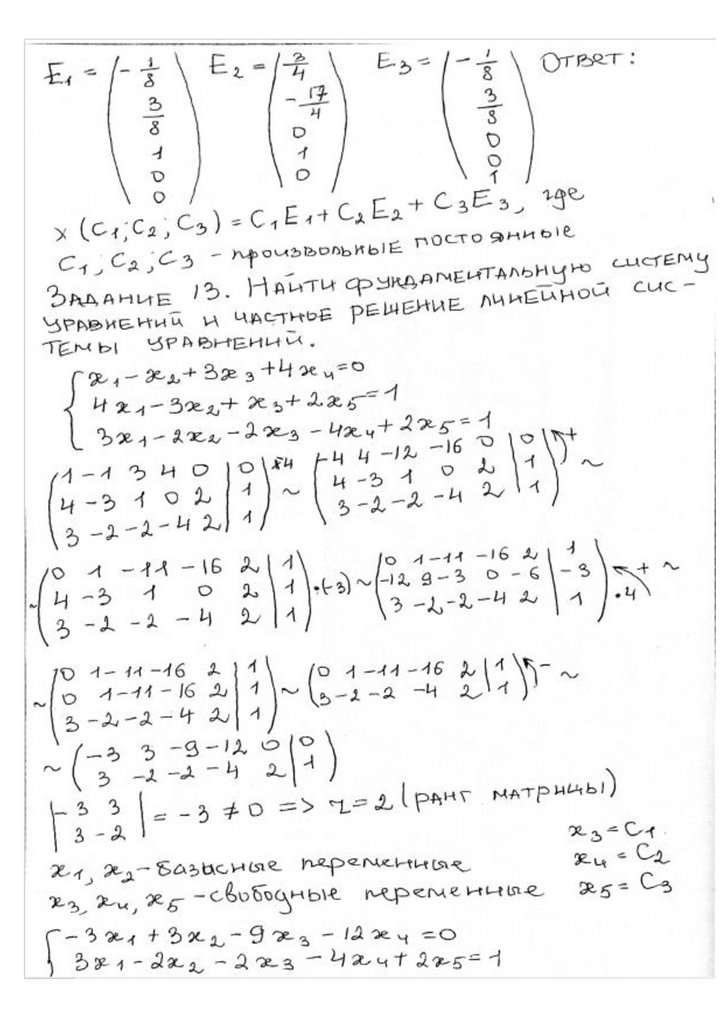 E₁ = (-1/8 3/8 1 0 0) E₂ = (3/4 -17/4 0 1 0) E₃ = (-1/8 3/8 0 0 1) Ответ:
x (C₁; C₂; C₃) = C₁E₁ + C₂E₂ + C₃E₃, где
C₁; C₂; C₃ - произвольные постоянные
Задание 13. Найти фундаментальную систему
уравнений и частное решение линейной сис-
темы уравнений.
{ x₁ - x₂ + 3x₃ + 4x₄ = 0
4x₁ - 3x₂ + x₃ + 2x₅ = 1
3x₁ - 2x₂ - 2x₃ - 4x₄ + 2x₅ = 1
(1 -1 3 4 0 | 0) ~ (-4 4 -12 -16 0 | 0) + ~
(4 -3 1 0 2 | 1) (4 -3 1 0 2 | 1)
(3 -2 -2 -4 2 | 1) (3 -2 -2 -4 2 | 1)
~ (0 1 -11 -16 2 | 1) ~ (0 1 -11 -16 2 | 1) + ~
(4 -3 1 0 2 | 1) ·(-3) (-12 9 -3 0 -6 | -3)
(3 -2 -2 -4 2 | 1) (3 -2 -2 -4 2 | 1) ·4
~ (0 1 -11 -16 2 | 1) ~ (0 1 -11 -16 2 | 1) - ~
(0 1 -11 -16 2 | 1) (3 -2 -2 -4 2 | 1)
(3 -2 -2 -4 2 | 1)
~ (-3 3 -9 -12 0 | 0)
(3 -2 -2 -4 2 | 1)
|-3 3| = -3 ≠ 0 => r = 2 (ранг матрицы)
|3 -2|
x₁, x₂ - базисные переменные
x₃, x₄, x₅ - свободные переменные
x₃ = C₁
x₄ = C₂
x₅ = C₃
{ -3x₁ + 3x₂ - 9x₃ - 12x₄ = 0
3x₁ - 2x₂ - 2x₃ - 4x₄ + 2x₅ = 1